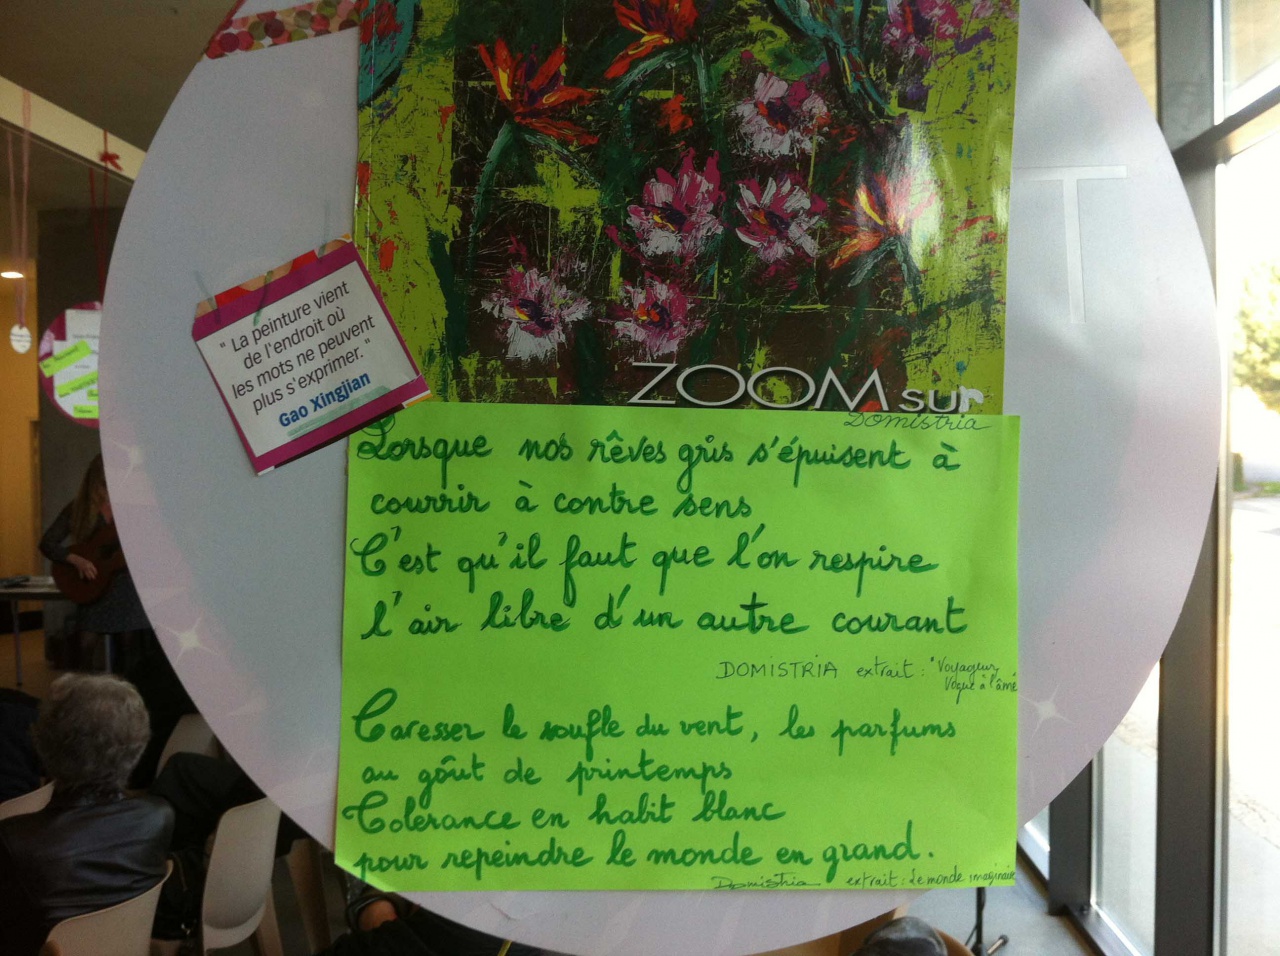 " La peinture vient
de l'endroit où
les mots ne peuvent
plus s'exprimer."
Gao Xingjian
T
ZOOM sur
Domistria
Lorsque nos rêves gris s'épuisent à
courrir à contre sens
C'est qu'il faut que l'on respire
l'air libre d'un autre courant
DOMISTRIA extrait : "Voyageur,
Vogue à l'âme
Caresser le souffle du vent, les parfums
au goût de printemps
Tolérance en habit blanc
pour repeindre le monde en grand.
Domistria extrait : Le monde imaginaire